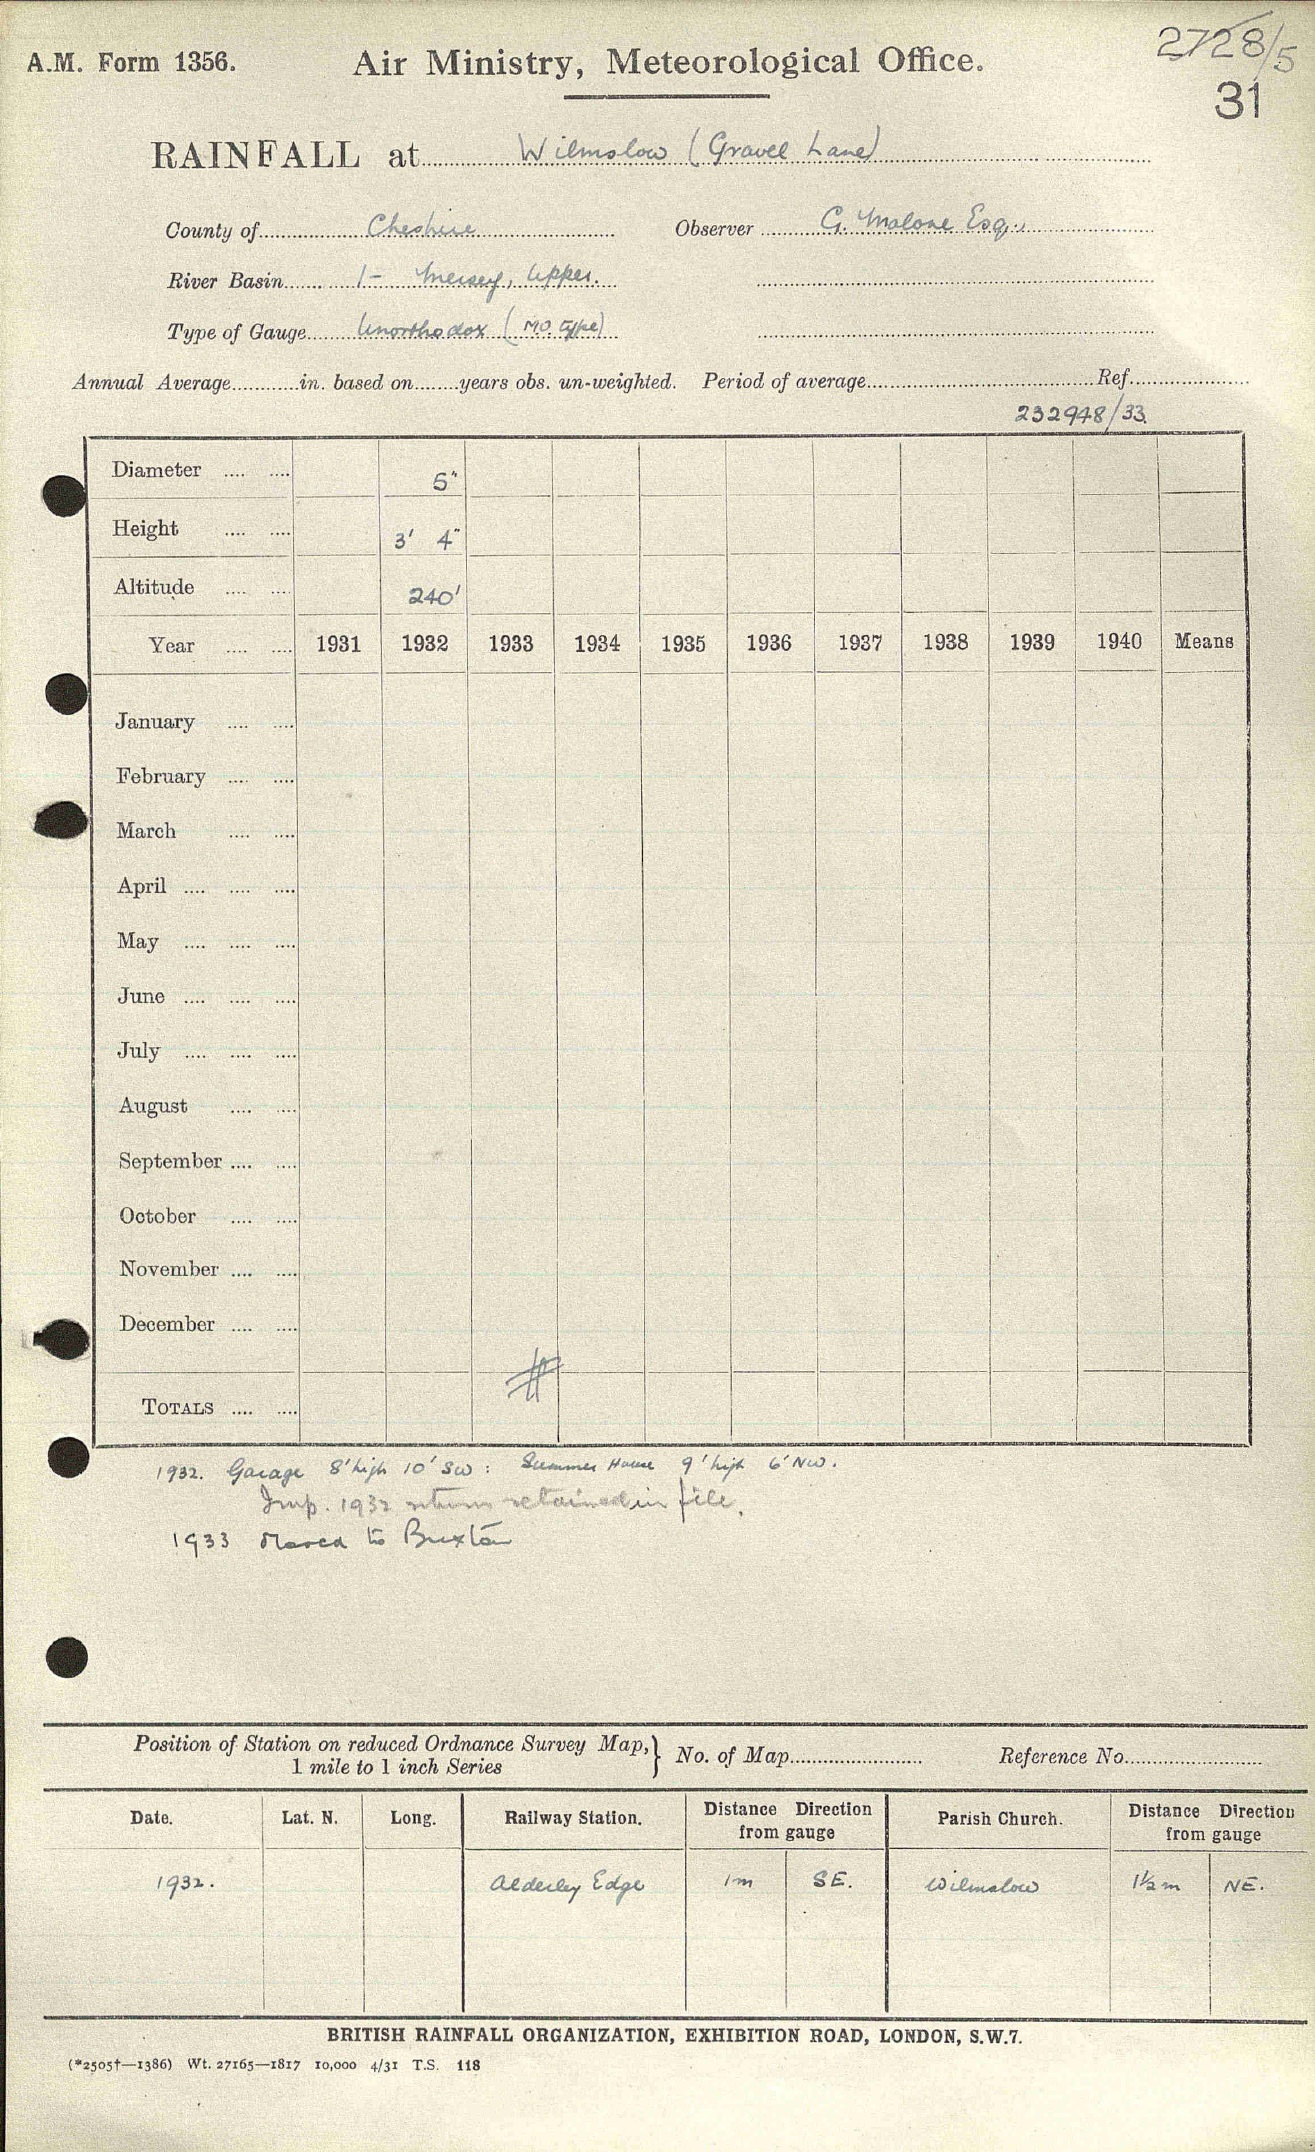 2728/5
A.M. Form 1356. Air Ministry, Meteorological Office.
31
RAINFALL at Wilmslow (Gravel Lane)
County of Cheshire Observer G. Malone Esq.,
River Basin 1- Mersey, Upper.
Type of Gauge Unorthodox (M.O. type)
Annual Average in. based on years obs. un-weighted. Period of average Ref.
232948/33.
Diameter 5"
Height 3' 4"
Altitude 240'
Year 1931 1932 1933 1934 1935 1936 1937 1938 1939 1940 Means
January
February
March
April
May
June
July
August
September
October
November
December
#
TOTALS
1932. Garage 8' high 10' SW : Summer House 9' high 6' NW.
Imp. 1932 return retained in file.
1933 Moved to Buxton
Position of Station on reduced Ordnance Survey Map, } No. of Map Reference No.
1 mile to 1 inch Series
Date. Lat. N. Long. Railway Station. Distance Direction from gauge Parish Church. Distance Direction from gauge
1932. Alderley Edge 1m SE. Wilmslow 1½m NE.
BRITISH RAINFALL ORGANIZATION, EXHIBITION ROAD, LONDON, S.W.7.
(*2505†—1386) Wt. 27165—1817 10,000 4/31 T.S. 118